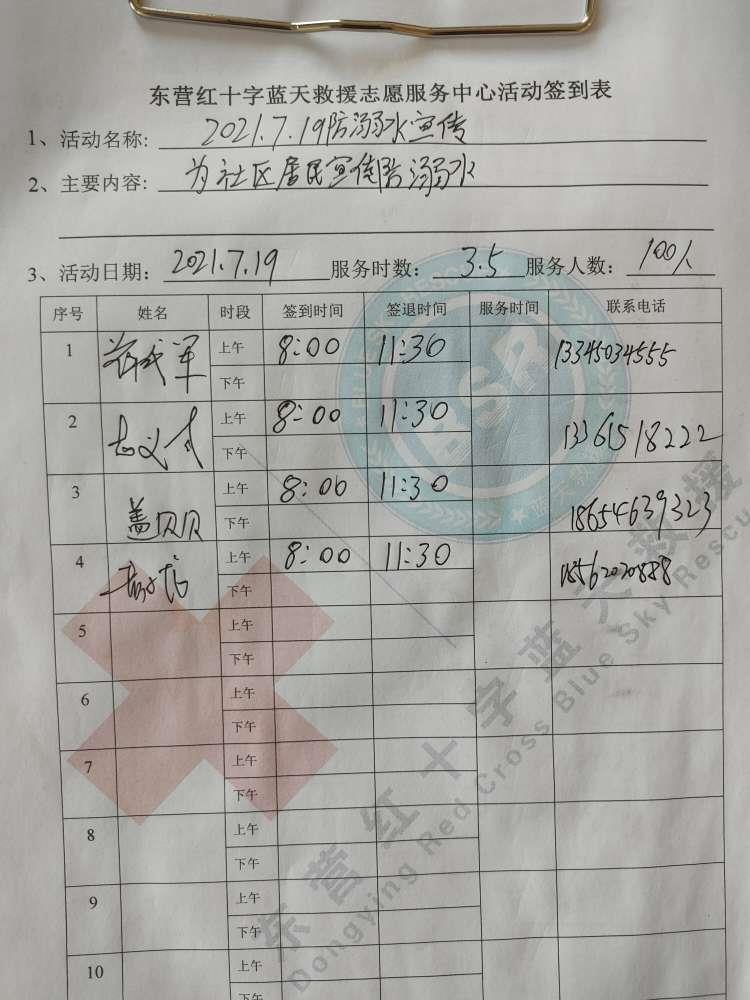 东营红十字蓝天救援志愿服务中心活动签到表
1、活动名称: 2021.7.19防溺水宣传
2、主要内容: 为社区居民宣传防溺水
3、活动日期: 2021.7.19 服务时数: 3.5 服务人数: 100人
序号 姓名 时段 签到时间 签退时间 服务时间 联系电话
1 上午 8:00 11:30 13345034555
下午
2 上午 8:00 11:30 13361518222
下午
3 盖贝贝 上午 8:00 11:30 18654639323
下午
4 上午 8:00 11:30 18562020888
下午
5 上午
下午
6 上午
下午
7 上午
下午
8 上午
下午
9 上午
下午
10 上午
下午
BSR
东营红十字蓝天救援
Dongying Red Cross Blue Sky Rescu